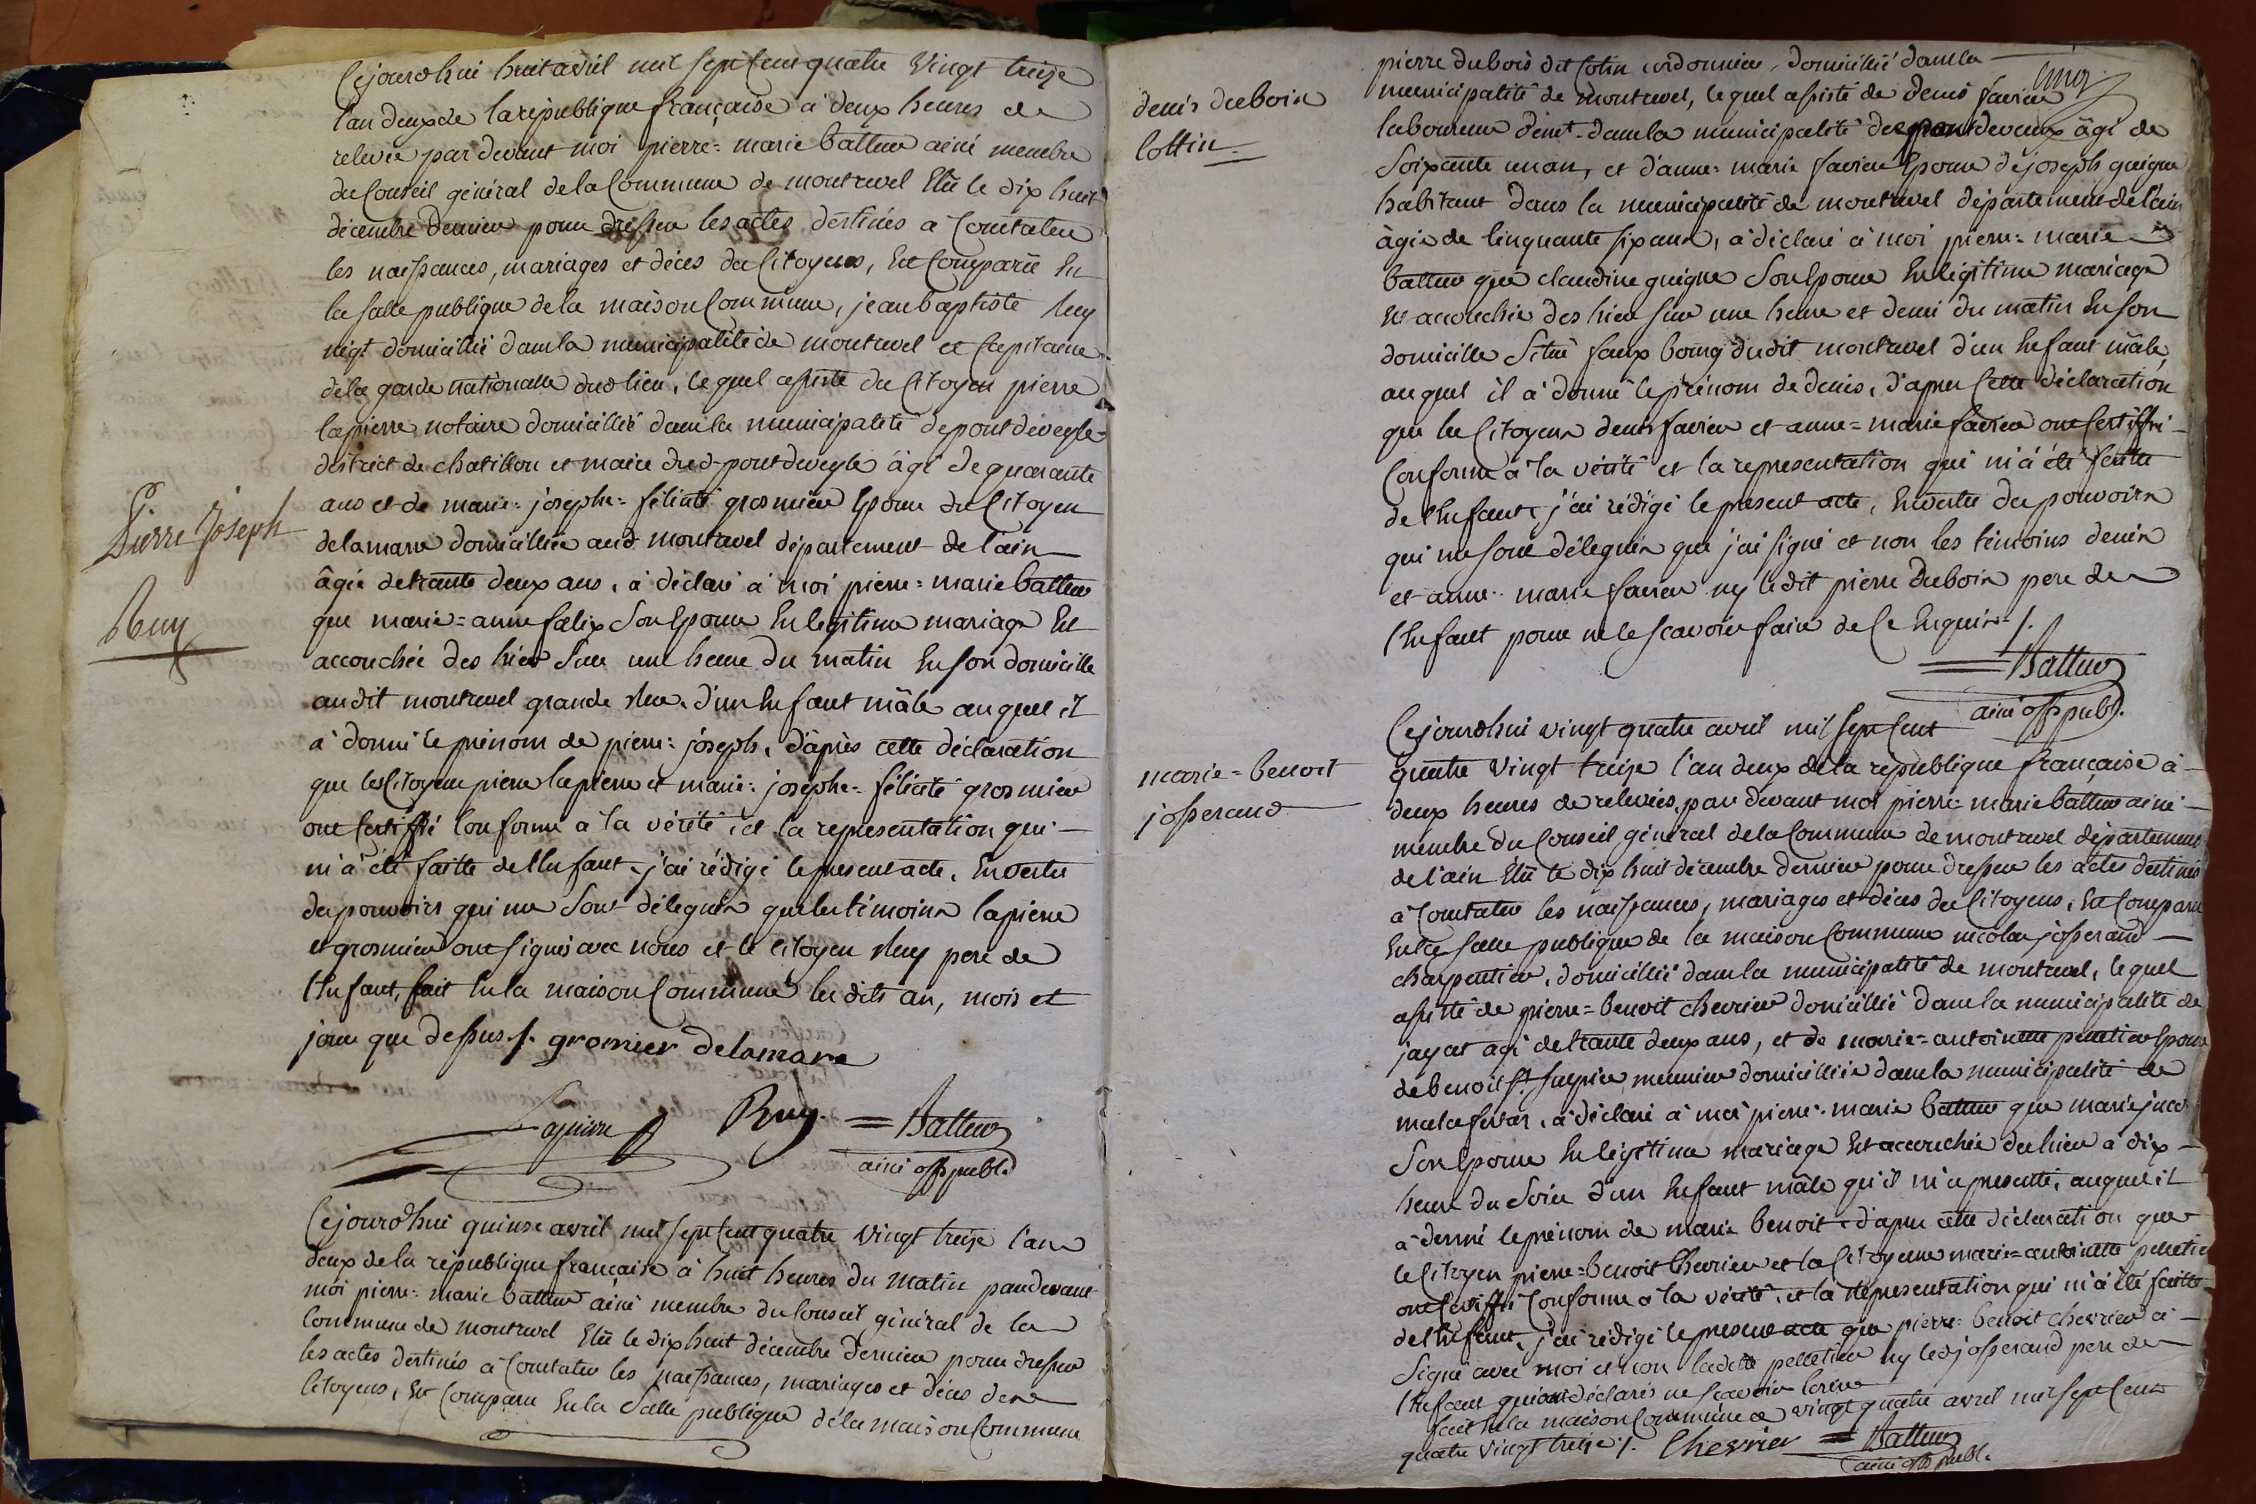 Cejourdhui huit avril mil sept Cent quatre Vingt treize
l'an deux de la republique française à deux heures de
relevée par devant moi pierre=marie battur ainé membre
du Conseil général de la Commune de montrevel Elû le dix huit
décembre dernier pour dresser les actes destinés a Constater
les naissances, mariages et décès des Citoyens, Est Comparu En
la salle publique de la maison Commune, jean baptiste Ruy
négt domicillié dans la municipalité de montrevel et Capitaine
de la garde nationalle dud lieu, lequel assisté du Citoyen pierre
lapierre notaire domicillié dans la municipalité de pont de vegle
district de chatillon et maire dud pont de vegle âgé de quarante
ans et de marie=josephe=félicité grosmier Epouse du Citoyen
delamare domicilliée aud montrevel département de l'ain
âgée de trante deux ans, à déclaré à moi pierre=marie battur
Pierre Joseph
Ruy
que marie=anne fælix Son Epouse En legitime mariage Est
accouchée des hier Sur une heure du matin En son domicille
audit montrevel grande Rue, d'un Enfant mâle auquel il
à donné le prénom de pierre=joseph, d'après cette déclaration
que les Citoyens pierre lapierre et marie=josephe=félicité grosmier
ont Certiffié Conforme à la vérité, et la representation qui
m'à été faitte de l'Enfant, j'ai rédigé le present acte, En vertu
des pouvoirs qui me Sont délegués que les témoins lapierre
et grosmier ont signés avec nous et le citoyen Ruy pere de
l'Enfant, fait En la maison Commune les dits an, mois et
jour que dessus ./. gromier delamare
Lapierre Ruy. = Battur
ainé off publ.
Cejourdhui quinze avril mil sept Cent quatre Vingt treize l'an
deux de la république française à huit heures du matin par devant
moi pierre=marie battur ainé membre du Conseil général de la
Commune de montrevel Elû le dix huit décembre dernier pour dresser
les actes destinés à Constater les naissances, mariages et décès des
Citoyens, Est Comparu En la Salle publique de la maison Commune
denis dubois
Cottin
pierre dubois dit Cotin cordonnier, domicillié dans la
municipalité de montrevel, lequel assisté de denis favier
laboureur démt dans la municipalité de pont de vaux âgé de
Soixante un an, et d'anne=marie favier Epouse de joseph guigue
habitant dans la municipalité de montrevel département de l'ain
âgée de Cinquante six ans, à déclaré à moi pierre=marie
battur que claudine guigue Son Epouse En légitime mariage
Est accouchée des hier sur une heure et demi du matin En son
domicille Situé faux bourg dudit montrevel d'un Enfant mâle
auquel il à donné le prénom de denis, d'apres Cette déclaration
que les Citoyens denis favier et anne=marie favier ont Certiffié
Conforme à la vérité et la representation qui m'à été faitte
de l'Enfant, j'ai rédigé le present acte, En vertu des pouvoirs
qui me sont délegués que j'ai signé et non les témoins denis
et anne=marie favier ny ledit pierre dubois pere de
l'Enfant pour ne le scavoir faire de Ce Enquis ./.
= Battur
ainé off publ.
marie=benoit
josserand
Cejourdhui vingt quatre avril mil sept Cent
quatre Vingt treize l'an deux de la république française à
deux heures de relevées, par devant moi pierre=marie battur ainé
membre du Conseil général de la Commune de montrevel département
de l'ain Elû le dix huit décembre dernier pour dresser les actes destinés
à Constater les naissances, mariages et décès des Citoyens, Est Comparu
En la salle publique de la maison Commune nicolas josserand
charpentier, domicillié dans la municipalité de montrevel, lequel
assisté de pierre=benoit chevrier domicillié dans la municipalité de
jayat agé de trante deux ans, et de marie=antoinette pelletier Epouse
de benoit St Surpier meunier domicilliée dans la municipalité de
malafretas, à déclaré à moi pierre=marie battur que marie
Son Epouse En légitime mariage Est accouchée du hier à dix
heure du Soir d'un Enfant mâle qu'il m'a presenté, auquel il
à donné le prénom de marie benoit, d'apres cette déclaration que
le Citoyen pierre=benoit Chevrier et la Citoyenne marie=antoinette pelletier
ont Certiffié Conforme à la vérité, et la representation qui m'à été faitte
de l'Enfant, j'ai rédigé le present acte que pierre=benoit chevrier à
Signé avec moi et non ladite pelletier ny led josserand pere de
l'Enfant qui ont déclarés ne scavoir Ecrire
fait En la maison Commune ce vingt quatre avril mil sept Cent
quatre Vingt treize ./. Chevrier = Battur
ainé off publ.